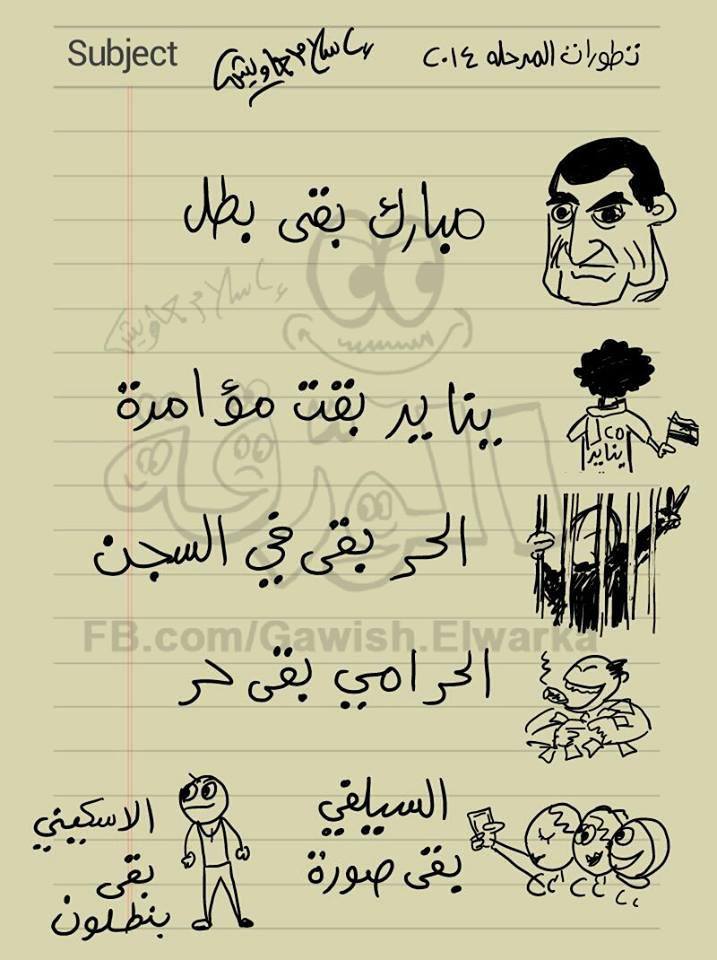 Subject
إسلام جاويش
تطورات المرحله ٢٠١٤
مبارك بقى بطل
إسلام جاويش
يناير بقت مؤامرة
٢٥
يناير
الورقة
الحر بقى في السجن
FB.com/Gawish.Elwarka
الحرامي بقى حر
السيلفي
بقى صورة
الاسكيني
بقى
بنطلون